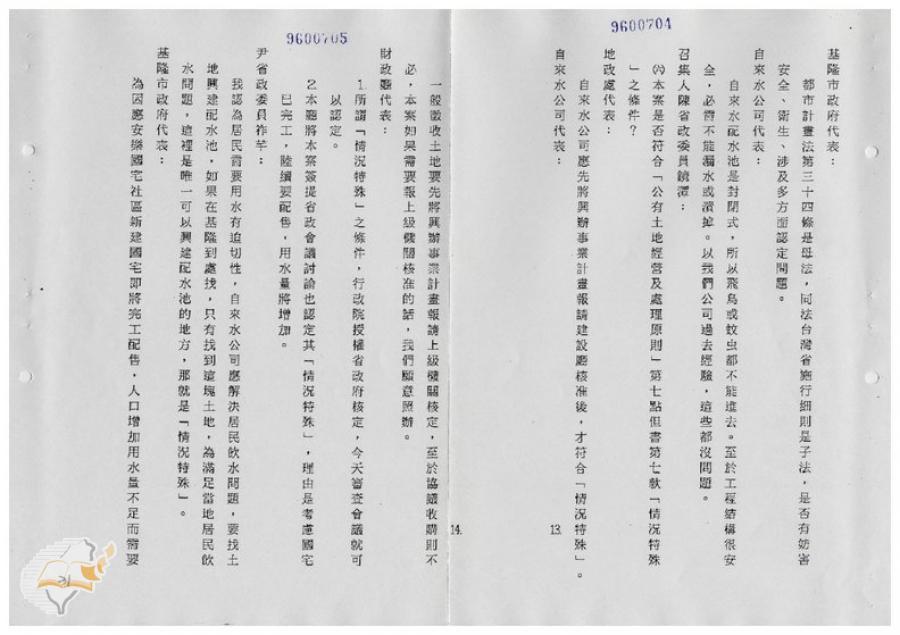 9600704
基隆市政府代表：
都市計畫法第三十四條是母法，同法台灣省施行細則是子法，是否有妨害
安全、衛生、涉及多方面認定問題。
自來水公司代表：
自來水配水池是封閉式，所以飛鳥或蚊虫都不能進去。至於工程結構很安
全，必需不能漏水或潰掉。以我們公司過去經驗，這些都沒問題。
召集人陳省政委員鏡潭：
㈥本案是否符合「公有土地經營及處理原則」第七點但書第七款「情況特殊
」之條件？
地政處代表：
自來水公司應先將興辦事業計畫報請建設廳核准後，才符合「情況特殊」。
自來水公司代表：
13.
9600705
14.
一般徵收土地要先將興辦事業計畫報請上級機關核定，至於協議收購則不
必，本案如果需要報上級機關核准的話，我們願意照辦。
財政廳代表：
1.所謂「情況特殊」之條件，行政院授權省政府核定，今天審查會議就可
以認定。
2.本廳將本案簽提省政會議討論也認定其「情況特殊」，理由是考慮國宅
已完工，陸續要配售，用水量將增加。
尹省政委員祚芊：
我認為居民需要用水有迫切性，自來水公司應解決居民飲水問題，要找土
地興建配水池，如果在基隆到處找，只有找到這塊土地，為滿足當地居民飲
水問題，這裡是唯一可以興建配水池的地方，那就是「情況特殊」。
基隆市政府代表：
為因應安樂國宅社區新建國宅即將完工配售，人口增加用水量不足而需要